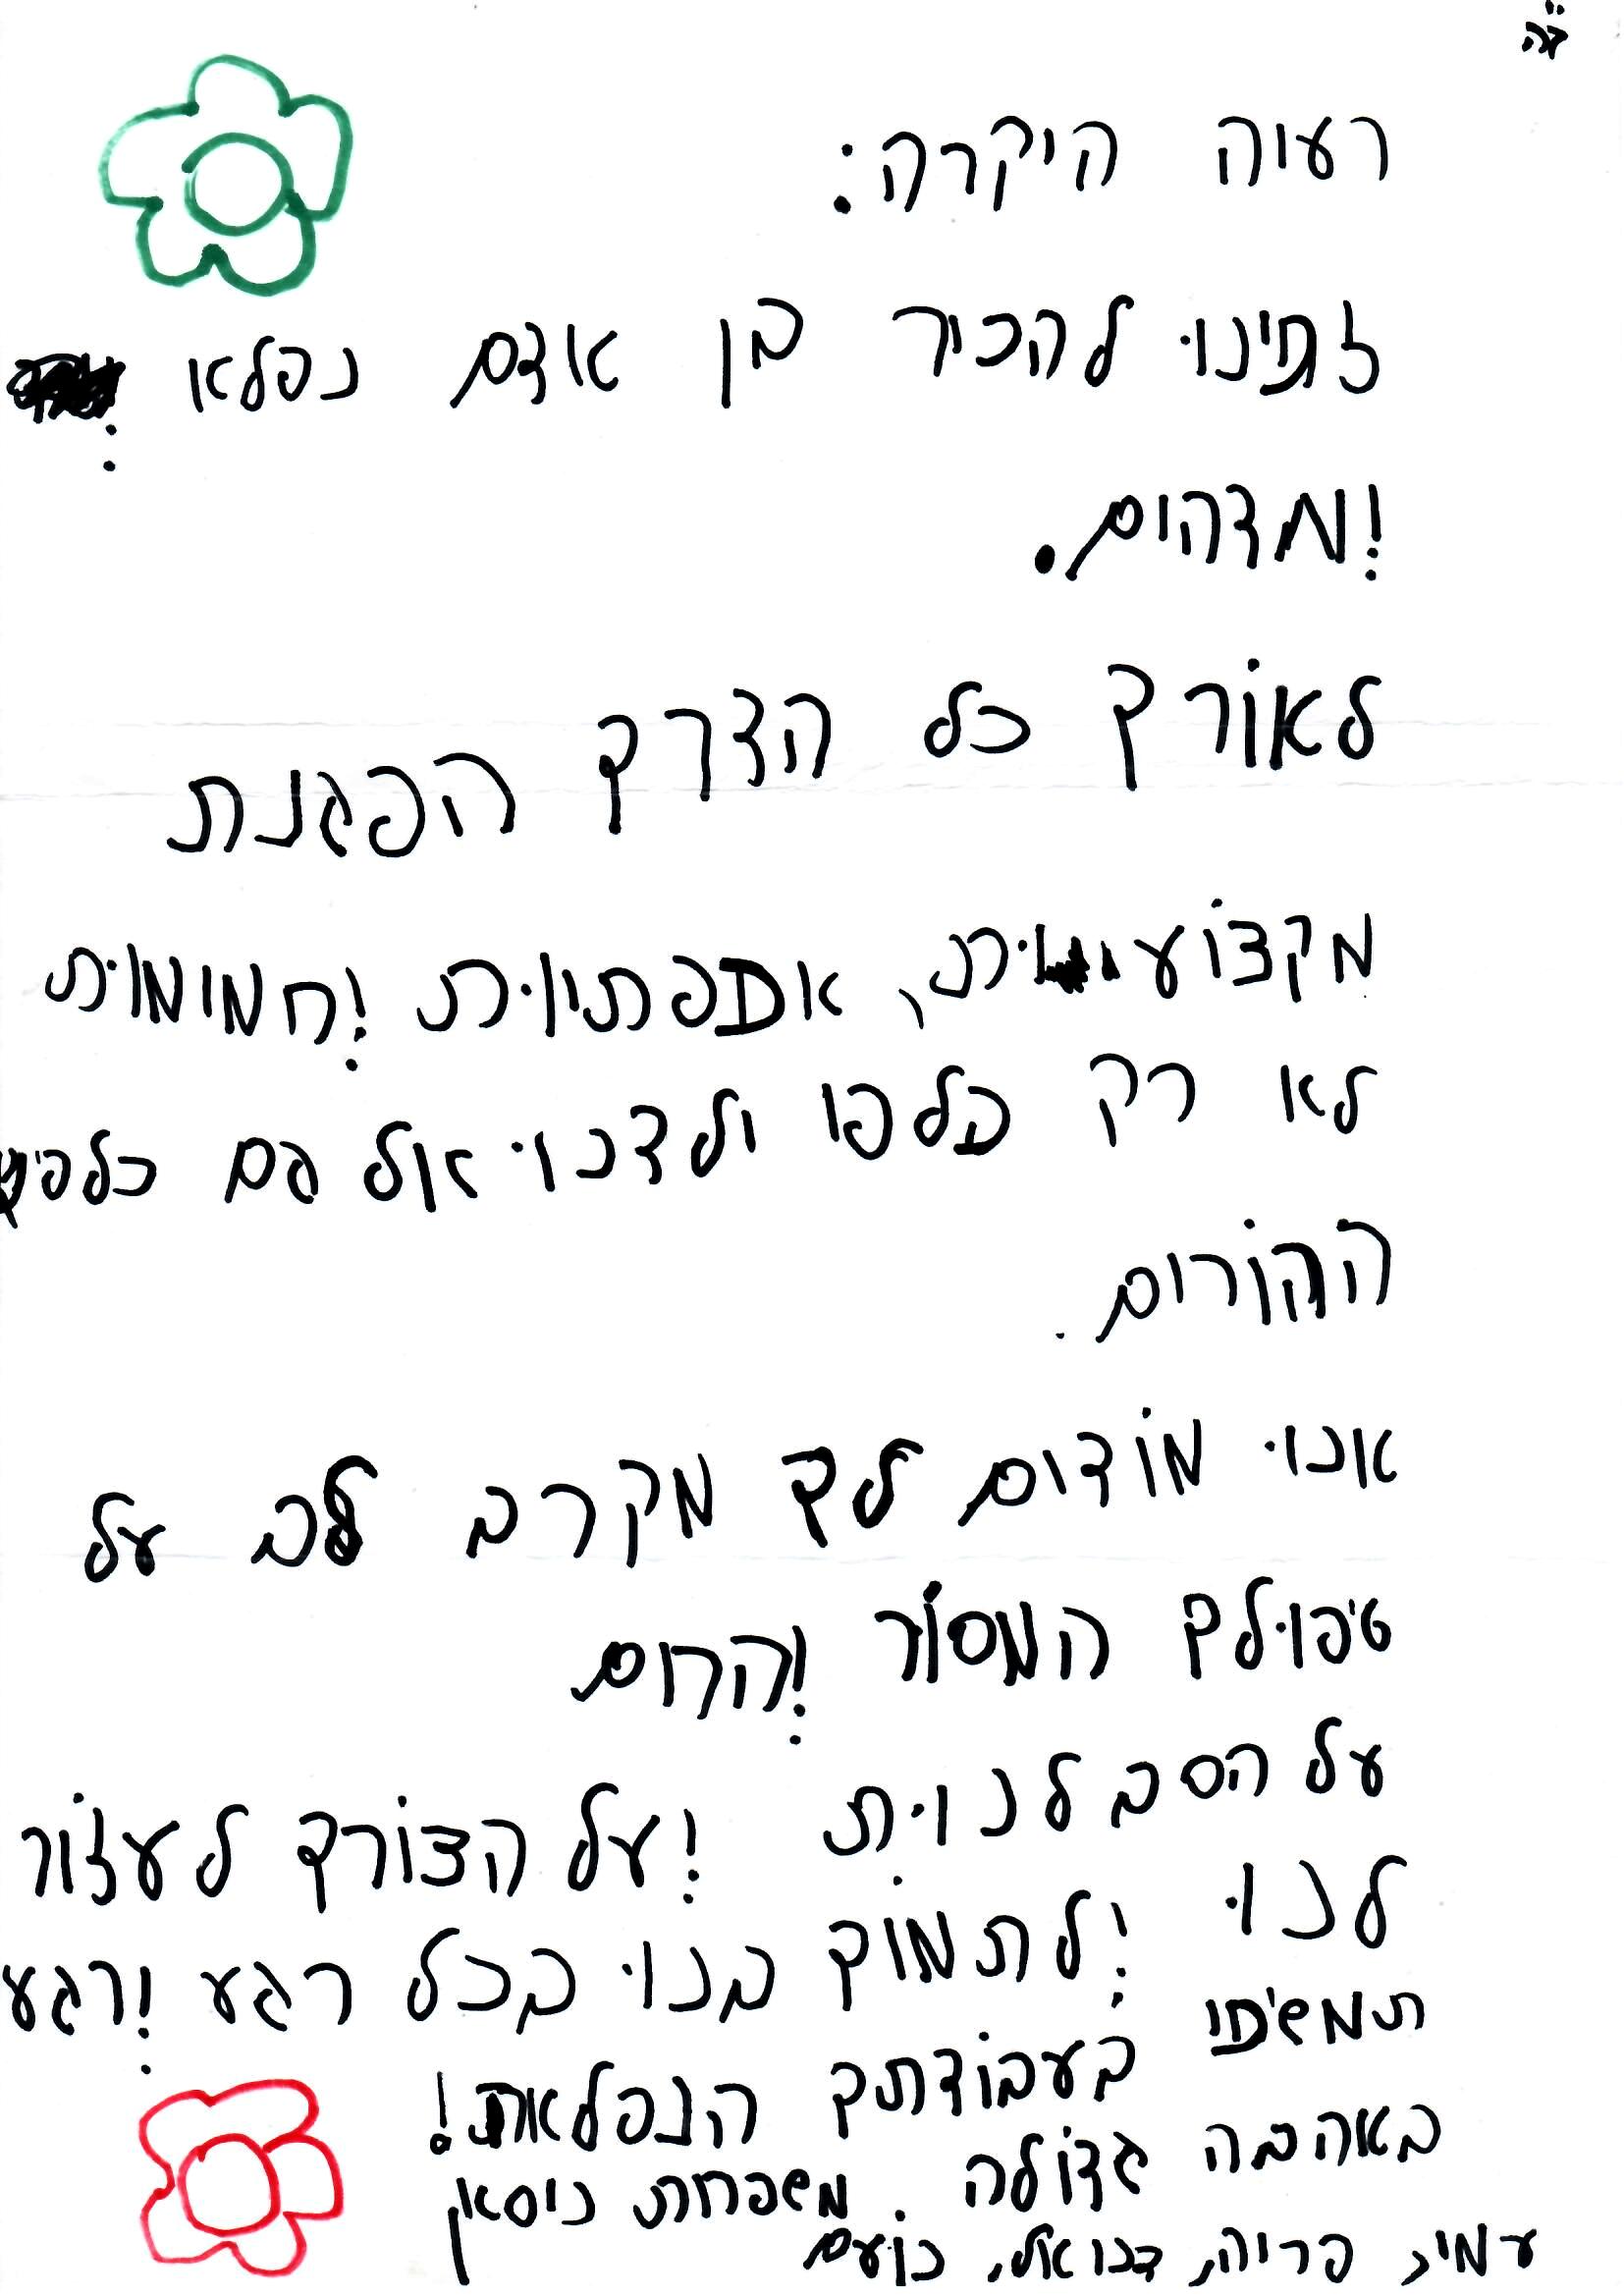 ב"ה
רעיה היקרה:
זכינו להכיר בן אדם נפלא
ומדהים.
לאורך כל הדרך הפגנת
מקצועיות, אמפתיות וחמימות
לא רק כלפי ולדנו אלא גם כלפי
ההורים.
אנו מודים לך מקרב לב על
טיפולך המסור והחם
על הסבלנות ועל הצורך לעזור
לנו ולתמוך בנו בכל רגע ורגע
תמשיכי בעבודתך הנפלאה!
באהבה גדולה. משפחת ניסאן
עמי, פריה, דניאל, נועם